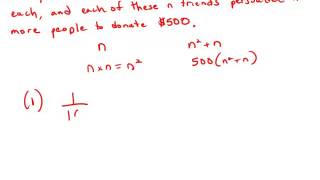 each, and each of these n friends persuades n
more people to donate $500.
n n²+n
n×n=n² 500(n²+n)
(1) 1